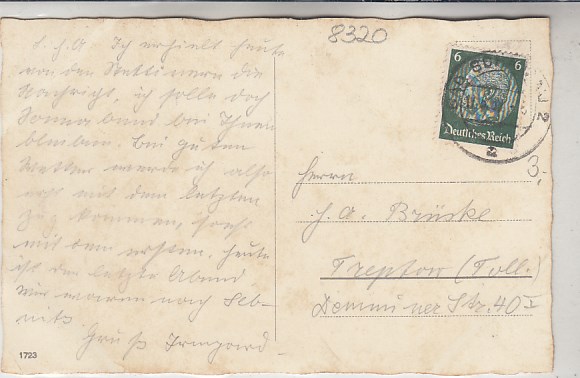 8320
L. H. A. Ich erhielt heute
von den Stettinern die
Nachricht, ich solle doch
Sonnabend bei Ihnen
bleiben. Bei guten
Wetter werde ich also
erst mit dem letzten
Zug kommen, sonst
mit dem ersten. Heute
ist der letzte Abend
Wir waren nach Seb-
nitz.
Gruß Irmgard
1723
6 6
Deutsches Reich
2
3,-
Herrn
H. A. Brüske
Treptow (Toll.)
Demminer Str. 40 I